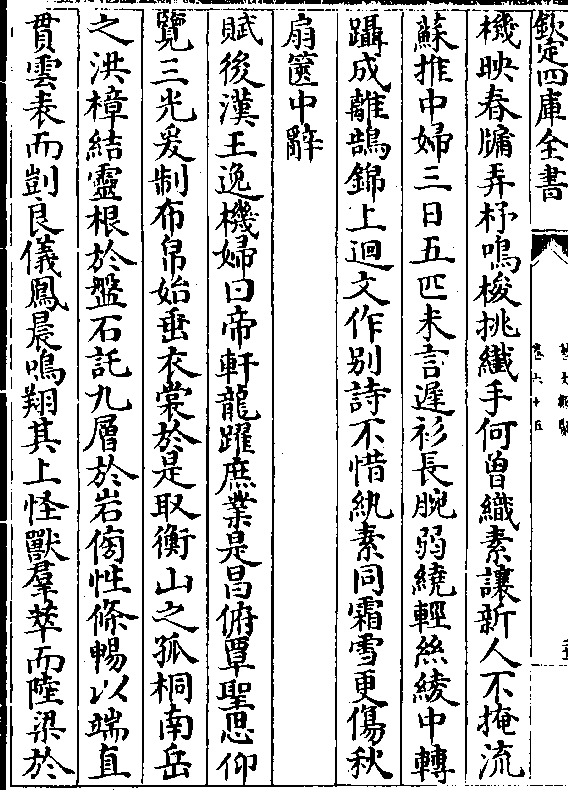 欽定四庫全書
機映春牖弄杼鳴梭挑纎手何曾織素讓新人不掩流
蘇推中婦三日五匹未言遲衫長腕弱繞輕絲綾中轉
躡成離鵠錦上迴文作别詩不惜紈素同霜雪更傷秋
扇篋中辭
賦後漢王逸機婦曰帝軒龍躍庶業是昌俯覃聖思仰
覽三光爰制布帛始垂衣裳於是取衡山之孤桐南岳
之洪樟結靈根於盤石託九層於岩傍性條暢以端直
貫雲表而剴良儀鳳晨鳴翔其上怪獸羣萃而陸梁於
卷六十五